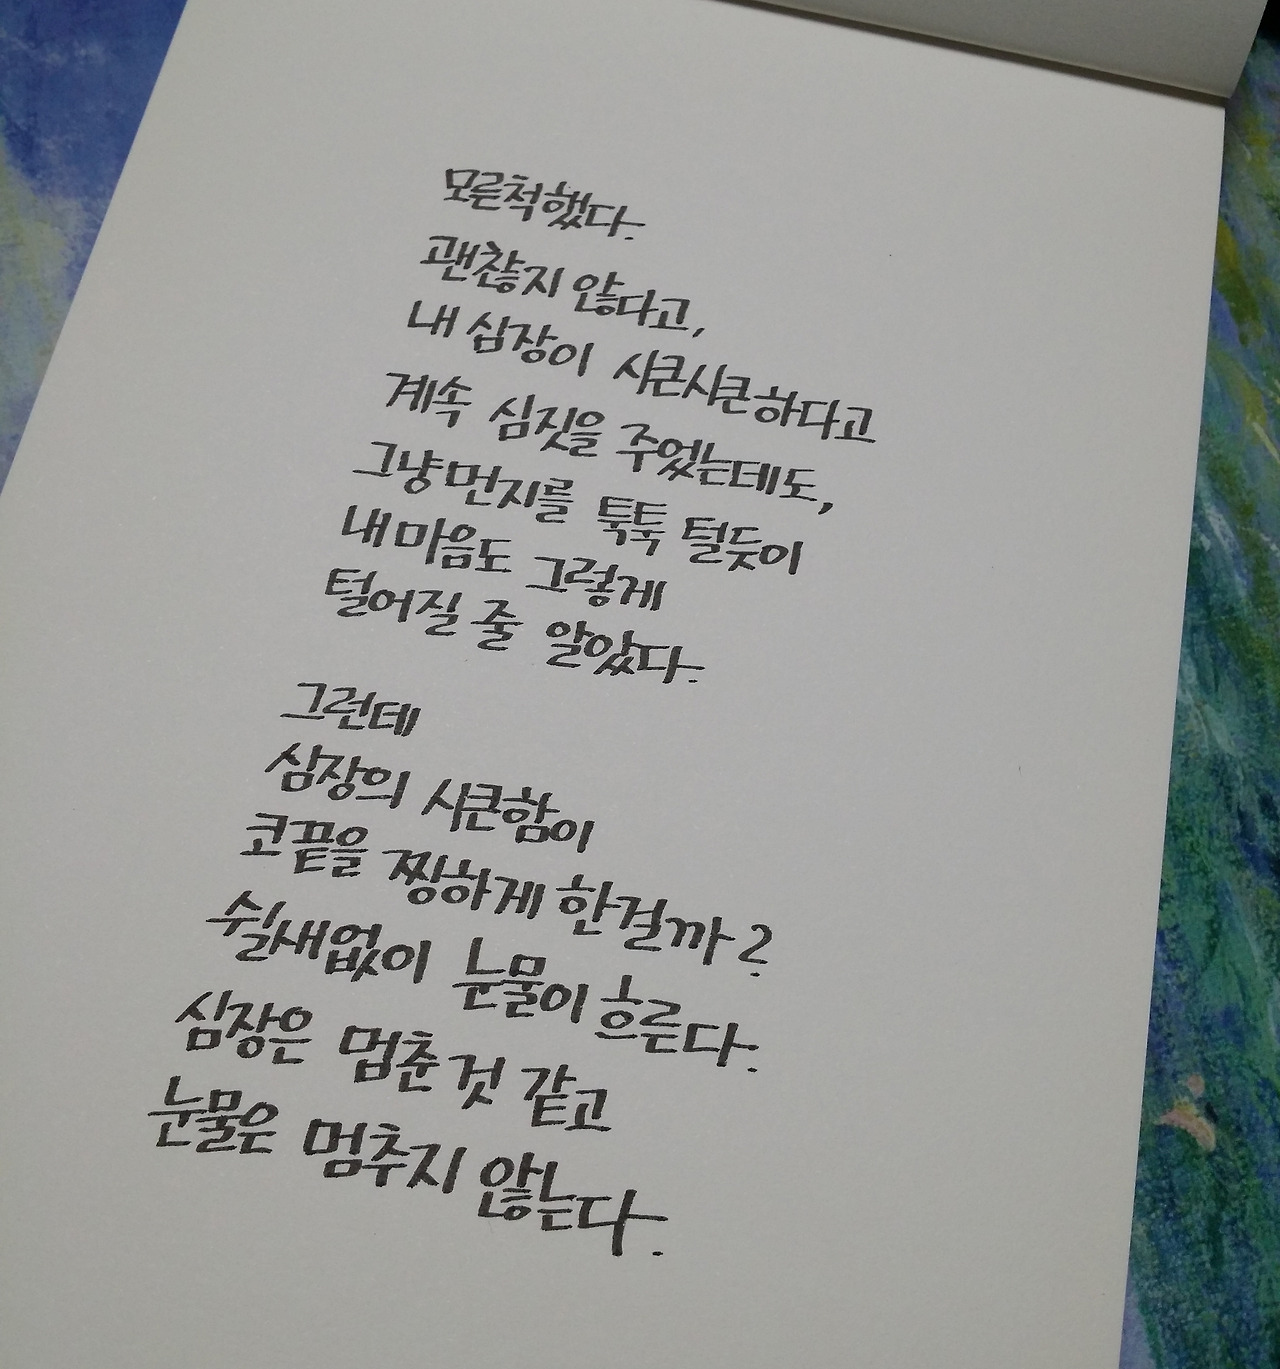 모른척했다.
괜찮지 않다고,
내 심장이 시큰시큰하다고
계속 심짓을 주었는데도,
그냥먼지를 툭툭 털듯이
내마음도 그렇게
털어질 줄 알았다.
그런테
심장의 시큰함이
코끝을 찡하게 한걸까?
쉴새없이 눈물이 흐른다.
심장은 멈춘것 같고
눈물은 멈추지 않는다.